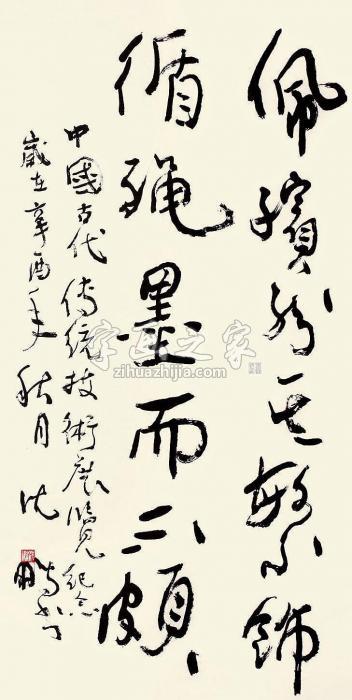 佩繽紛其繁飾
循繩墨而不頗
中國古代傳統技術展覽紀念
歲在辛酉年秋月沈鵬书
字画之家
zihuazhijia.com